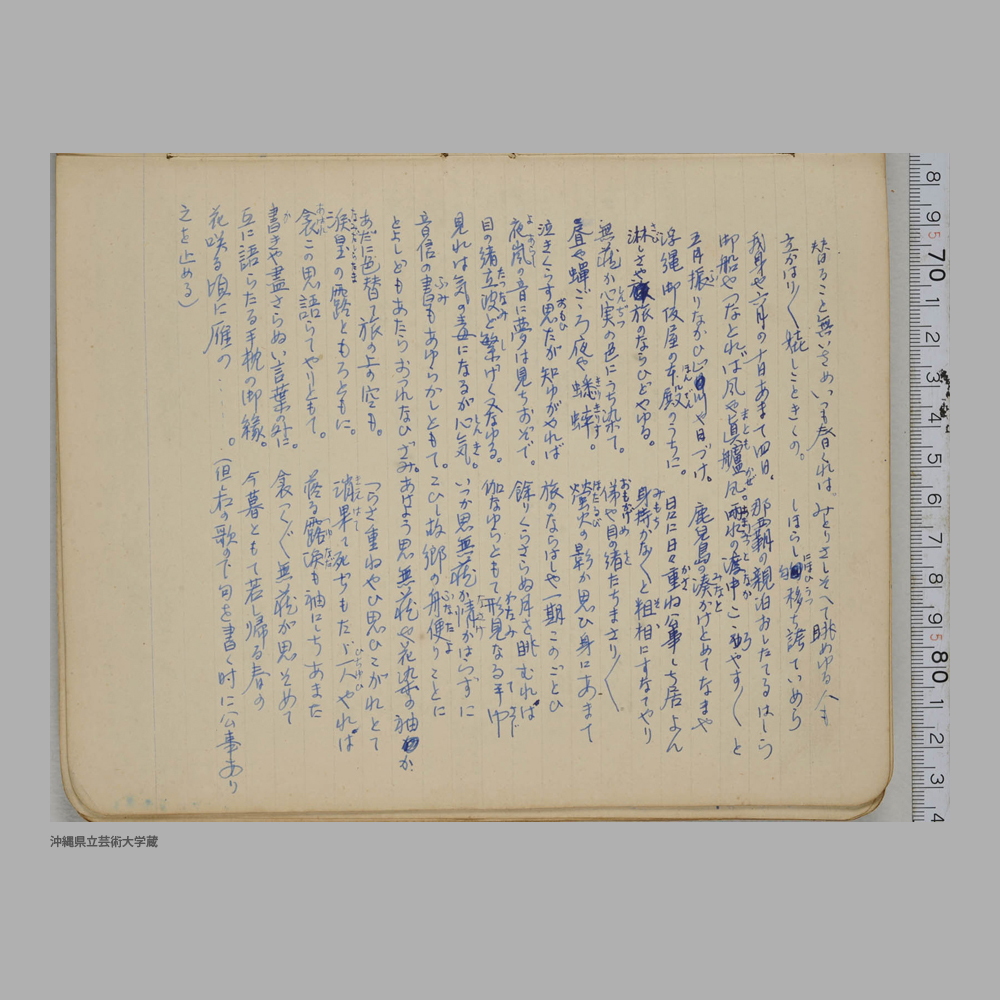 替ること無いさめいつも春くれば。みどりさしそへて眺めゆる人も
立かはり〱嬉しことききの。しほらし匂移ち誇ていめら
我身や六月の十日あまて四日。那覇の親泊おしたてるはしら
御船やつなとれば風や真艫風。雨水の渡中こゝろやす〱と
五月振りながひ山川や日づけ。鹿児島の湊かけとめてなまや
浮縄御仮屋の本殿のうちに。日に日々重ね公事しち居よん
淋しさや旅のならひどやゆる。身持かなくと粗相にすなてやり
無蔵が心実の色にうち染て。俤や目の緒たちまさり〱
昼や蝉ごゝろ夜や蟋蟀。螢火の影か思ひ身にあまて
泣きくらす思たが知ゆがやれば旅のならはしや一期このごとひ
夜嵐の音に夢は見ちおぞで。余りくらさらぬ月を眺むれば
目の緒立波ど繋げく又なゆる。伽なゆらともて形見なる手巾
見れは気の毒になるが心気。いつか思無蔵が情かはらずに
音信の書もあゆらかしともて。こひし故郷の舟便りことに
とよしどもあたらおつれなひざみあげよう思無蔵や花染の袖か
あだに色替て旅の上の空も。つらさ重ねやひ思ひこがれとて
涙皇の露ともろともに。消果て死ちもただ一人やれば
哀この思語らてやりともて。落る露涙も袖にちあまた
書きや尽さらぬい言葉の外に。哀つくぐ無蔵が思そめて
互に語らたる手枕の御縁。今暮ともて若し帰る春の
花咲る頃に雁の……。(但し右の歌の下句を書く時に公事あり
之を止める)
沖縄県立芸術大学蔵